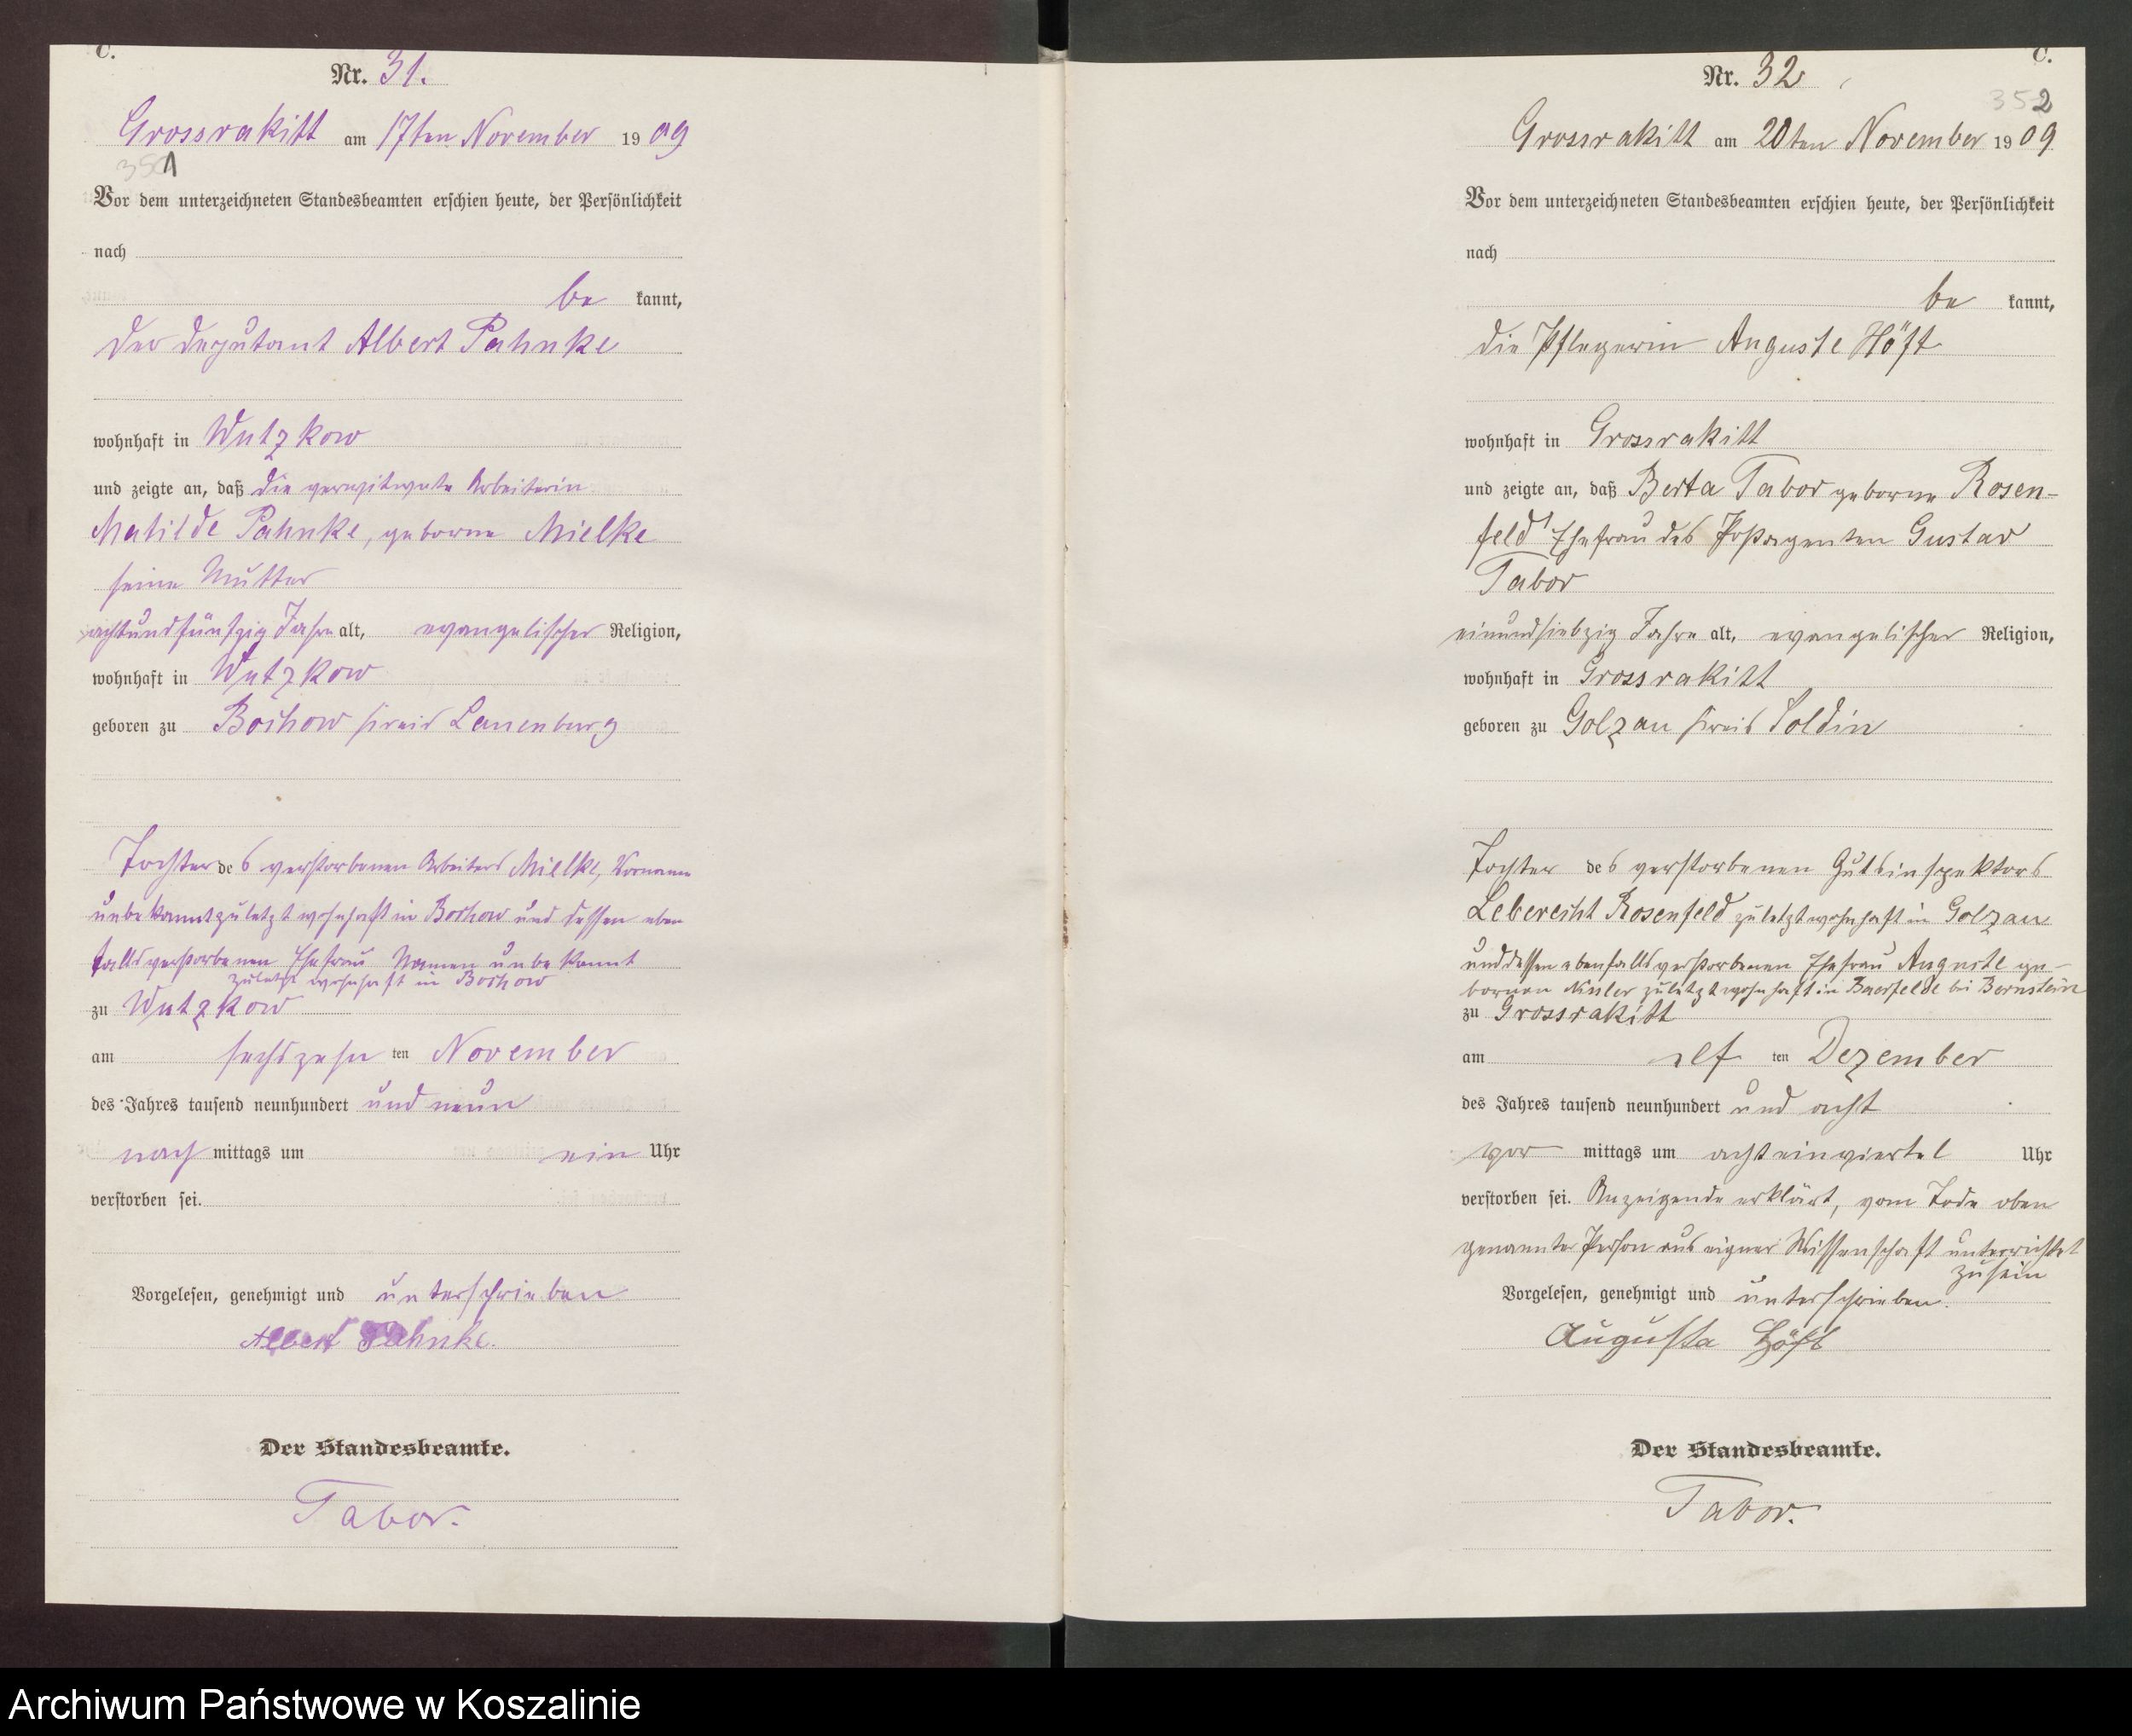 C.
Nr. 31.
Grossrakitt am 17ten November 1909
351
Vor dem unterzeichneten Standesbeamten erschien heute, der Persönlichkeit
nach
be kannt,
der Deputant Albert Pahnke
wohnhaft in Wutzkow
und zeigte an, daß die verwitwete Arbeiterin
Matilde Pahnke, geborne Mielke
seine Mutter
achtundfünfzig Jahre alt, evangelischer Religion,
wohnhaft in Wutzkow
geboren zu Bochow Kreis Lauenburg
Tochter des verstorbenen Arbeiters Mielke, Vorname
unbekannt zuletzt wohnhaft in Bochow und dessen eben
falls verstorbenen Ehefrau Namen unbekannt
zuletzt wohnhaft in Bochow
zu Wutzkow
am sechszehn ten November
des Jahres tausend neunhundert und neun
nach mittags um ein Uhr
verstorben sei.
Vorgelesen, genehmigt und unterschrieben
Albert Pahnke.
Der Standesbeamte.
Tabor.
C.
Nr. 32
352
Grossrakitt am 20ten November 1909
Vor dem unterzeichneten Standesbeamten erschien heute, der Persönlichkeit
nach
be kannt,
die Pflegerin Auguste Höft
wohnhaft in Grossrakitt
und zeigte an, daß Berta Tabor geborne Rosen-
feld Ehefrau des Postagenten Gustav
Tabor
einundsiebzig Jahre alt, evangelischer Religion,
wohnhaft in Grossrakitt
geboren zu Golzau Kreis Soldin
Tochter des verstorbenen Gutsinspektors
Leberecht Rosenfeld zuletzt wohnhaft in Golzau
und dessen ebenfalls verstorbenen Ehefrau Auguste ge-
bornen zuletzt wohnhaft in Baerfelde bei Bernstein
zu Grossrakitt
am elf ten Dezember
des Jahres tausend neunhundert und acht
vor mittags um acht einviertel Uhr
verstorben sei. Anzeigende erklärt, vom Tode oben
genannter Person aus eigner Wissenschaft unterrichtet
zu sein
Vorgelesen, genehmigt und unterschrieben.
Augusta Höft
Der Standesbeamte.
Tabor.
Archiwum Państwowe w Koszalinie